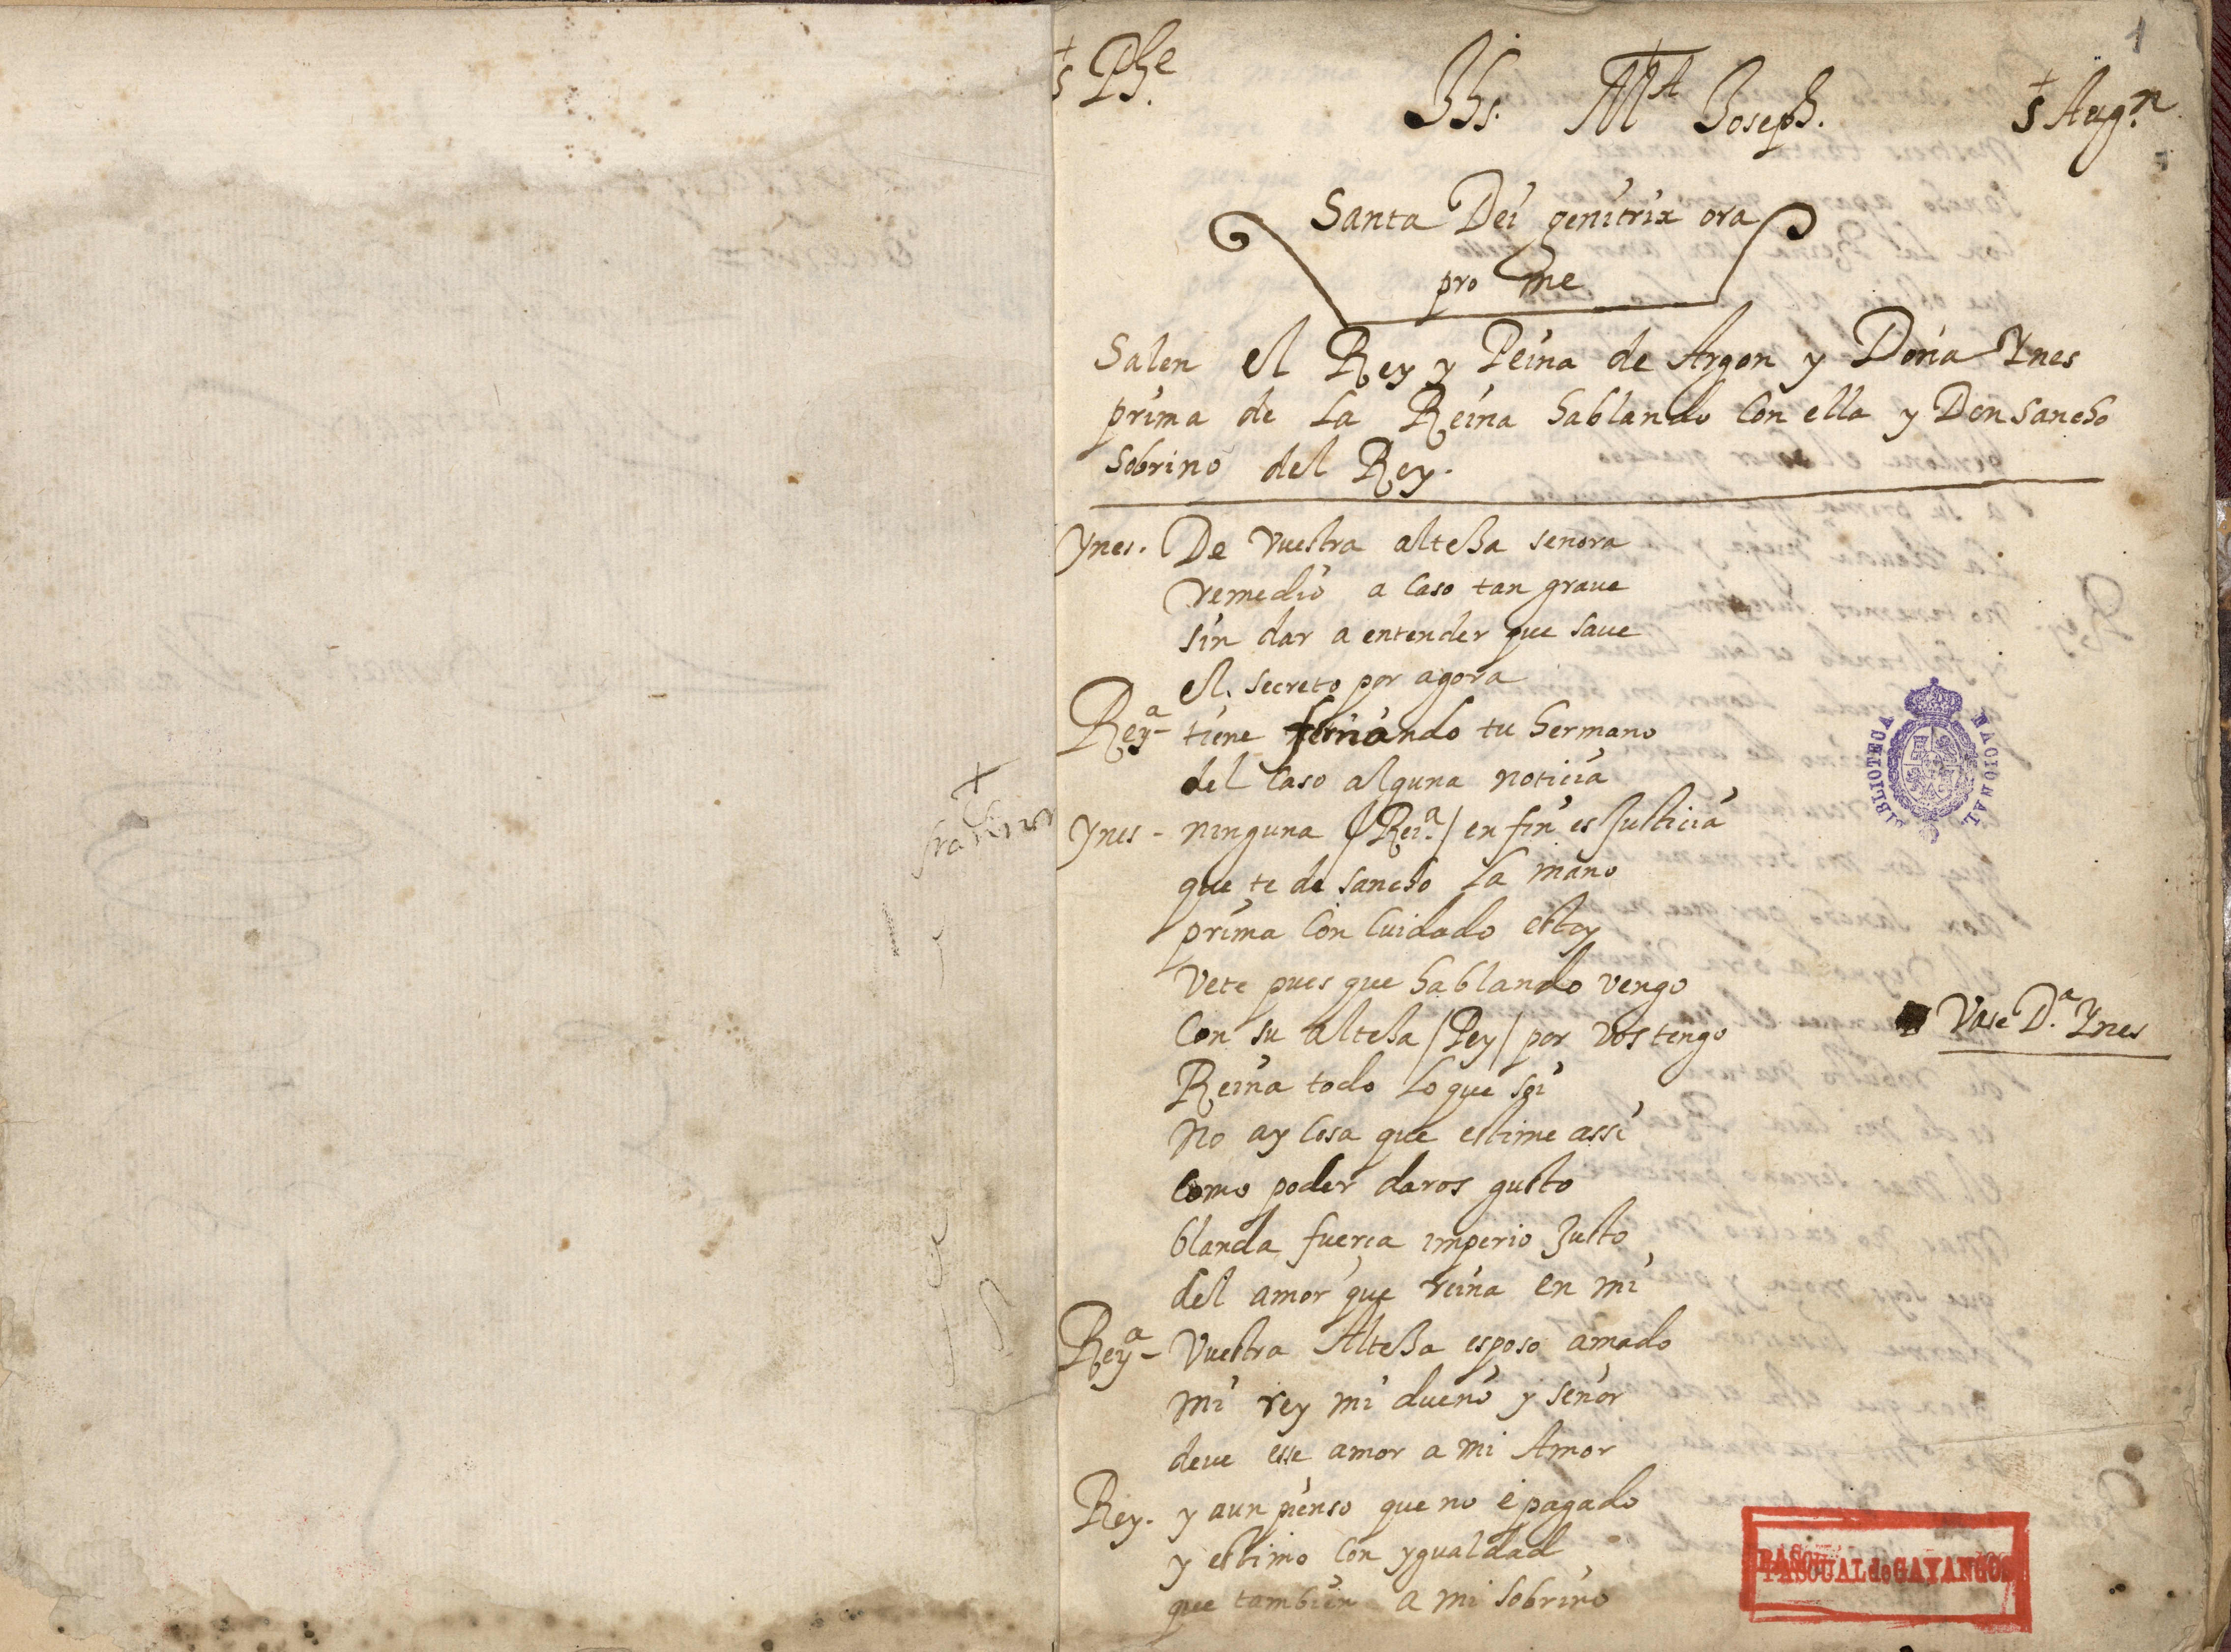 1
s Phe.
Jhs. Mª Joseph.
s Augn.
Santa Dei genitrix ora
pro me
Salen el Rey y Reina de Argon y Doña Ynes
prima de La Reina hablando Con ella y Don Sancho
Sobrino del Rey.
Ynes. De vuestra altessa señora
remedio a caso tan graue
sin dar a entender que saue
el secreto por agora
Reyª- tiene fernando tu hermano
del caso alguna noticia
Ynes - ninguna /Reiª./ en fin es Justicia
que te de sancho La mano
prima Con Cuidado estoy
Vete pues que hablando vengo
Con su altessa /Rey/ por vos tengo
Vase D.ª Ynes
Reina todo Lo que soi
No ay cosa que estime assi
Como poder daros gusto
blanda fuerça imperio Justo
del amor que reina en mi
Reyª- Vuestra Altessa esposo amado
mi rey mi dueño y señor
deve esse amor a mi Amor
Rey. y aun pienso que no e pagado
y estimo Con ygualdad
que tambien a mi sobrino
BIBLIOTECA NACIONAL
PASCUAL de GAYANGOS